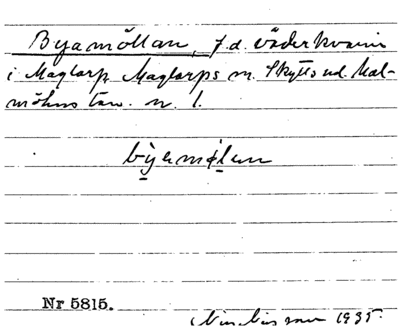 Byamöllan, f.d. väderkvarn
i Maglarp Maglarps sn. Skytts hd. Mal-
möhus län. n. 1.
byamölan
Nr 5815.
1935.